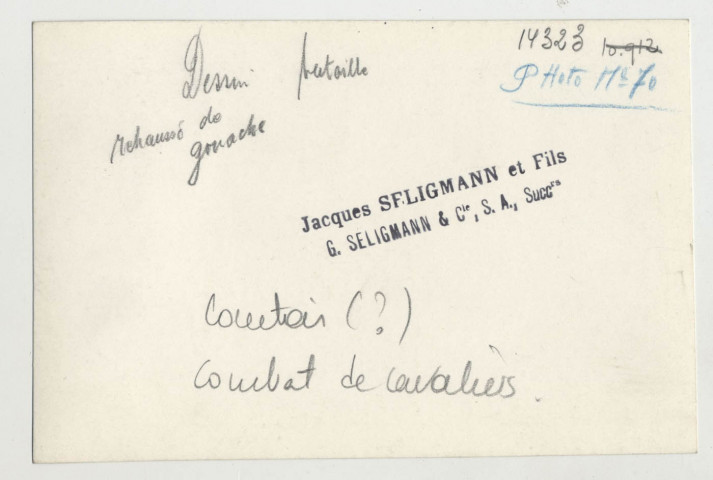 14323 10.912.
PHoto Nº 70
Dessin bataille
rehaussé de
gouache
Jacques SELIGMANN et Fils
G. SELIGMANN & Cie, S. A., Succrs
Courtois (?)
Combat de cavaliers.